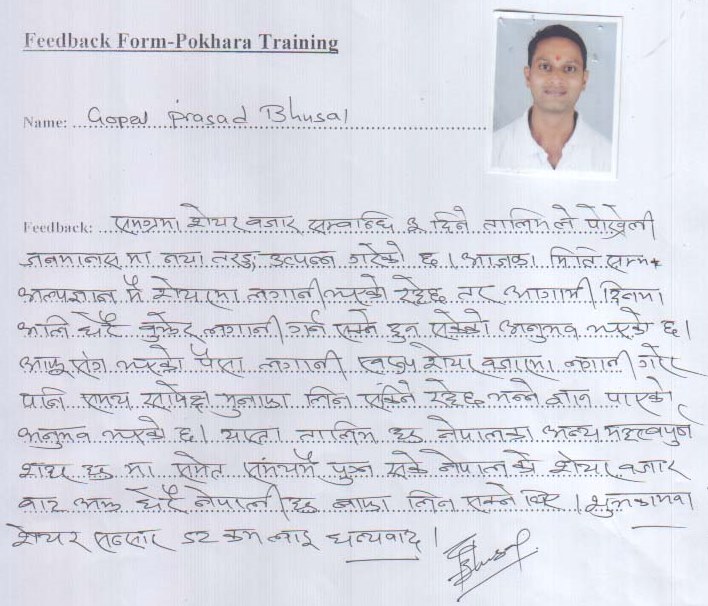 Feedback Form-Pokhara Training
Name: Gopal Prasad Bhusal
Feedback: समग्रमा शेयर बजार सम्बन्धि ३ दिने तालिमले पोखरेली
जनमानसमा नया तरङ्ग उत्पन्न गरेको छ। आजका मिति सम्म
अल्पज्ञान मै शेयरमा लगानी भएको रहेछ तर आगामी दिनमा
अलि धेरै बुझेर लगानी गर्न सक्ने हुन सकेको अनुभव भएको छ।
आफू संग भएको पैसा लगानी स्वरुप शेयर बजारमा लगानी गरेर
पनि समय सापेक्ष मुनाफा लिन सकिने रहेछ भन्ने ज्ञान पाएको
अनुभव भएको छ। यस्ता तालिम हरु नेपालका अन्य महत्वपूर्ण
शहर हरु मा समेत समयमै पुग्न सके नेपालको शेयर बजार
बाट अझ धेरै नेपाली हरु लाभ लिन सक्ने थिए। शुभकामना
शेयर सन्सार डट कम लाइ धन्यवाद।
Bhusal